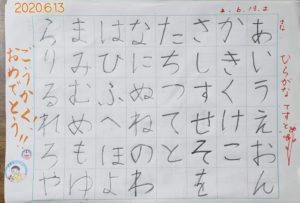 2020.6.13
ひらがな てすと
あいうえおん
かきくけこ
さしすせそを
たちつてと
なにぬねのわ
はひふへほよ
まみむめもゆ
らりるれろや
ごうかく、
おめでとう!!